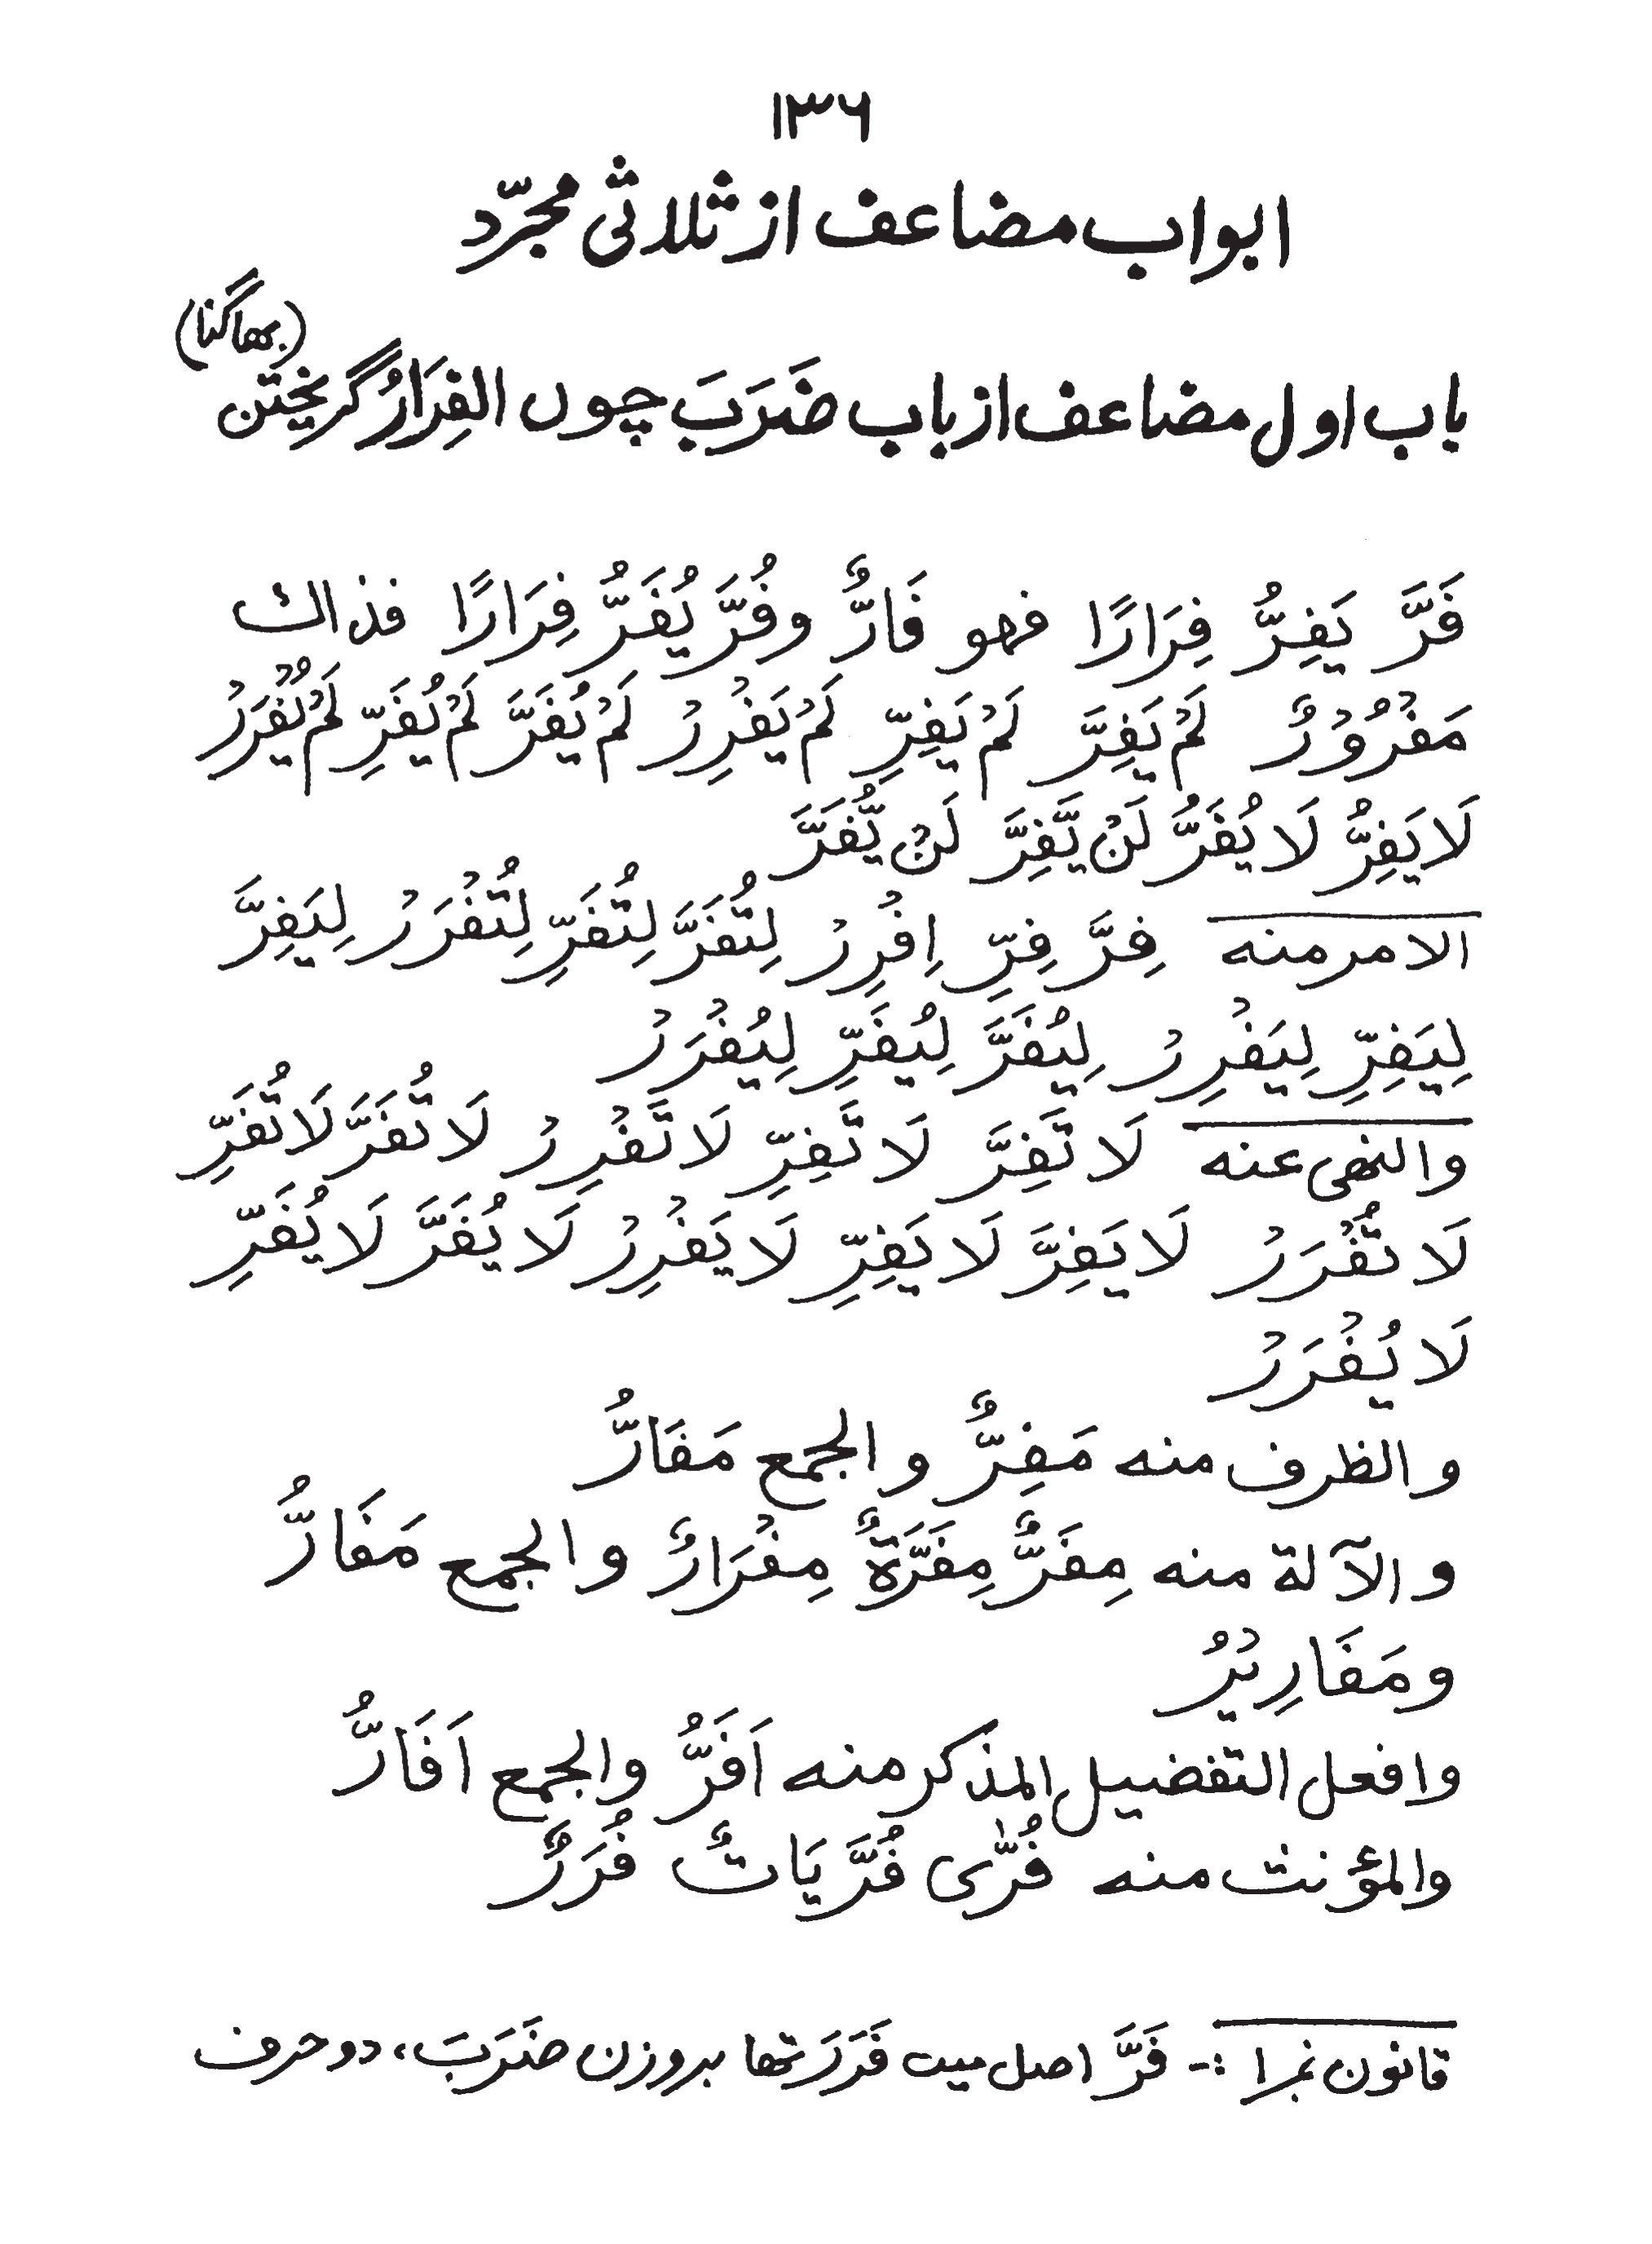 ۱۳۶
ابواب مضاعف از ثلاثی مجرّد
(بھاگنا)
باب اول مضاعف از باب ضَرَبَ چوں الفِرَارُ گریختن
فَرَّ يَفِرُّ فِرَارًا فهو فَارٌّ وفُرَّ يُفَرُّ فِرَارًا فذاك
مَفْرُوْرٌ لَمْ يَفِرَّ لَمْ يَفِرِّ لَمْ يَفْرِرْ لَمْ يُفَرَّ لَمْ يُفَرِّ لَمْ يُفْرَرْ
لَا يَفِرُّ لَا يُفَرُّ لَنْ يَّفِرَّ لَنْ يُّفَرَّ
الامر منه فِرَّ فِرِّ اِفْرِرْ لِتُفَرَّ لِتُفَرِّ لِتُفْرَرْ لِيَفِرَّ
لِيَفِرِّ لِيَفْرِرْ لِيُفَرَّ لِيُفَرِّ لِيُفْرَرْ
والنهى عنه لَا تَفِرَّ لَا تَفِرِّ لَا تَفْرِرْ لَا تُفَرَّ لَا تُفَرِّ
لَا تُفْرَرْ لَا يَفِرَّ لَا يَفِرِّ لَا يَفْرِرْ لَا يُفَرَّ لَا يُفَرِّ
لَا يُفْرَرْ
و الظرف منه مَفِرٌّ و الجمع مَفَارُّ
و الآلة منه مِفَرٌّ مِفَرَّةٌ مِفْرَارٌ و الجمع مَفَارُّ
و مَفَارِيْرُ
وافعل التفضيل المذكر منه اَفَرُّ والجمع اَفَارُّ
والمؤنث منه فُرّٰى فُرَّيَاتٌ فُرَرٌ
قانون نمبر ۱ :- فَرَّ اصل میں فَرَرَ تھا بروزن ضَرَبَ، دو حرف